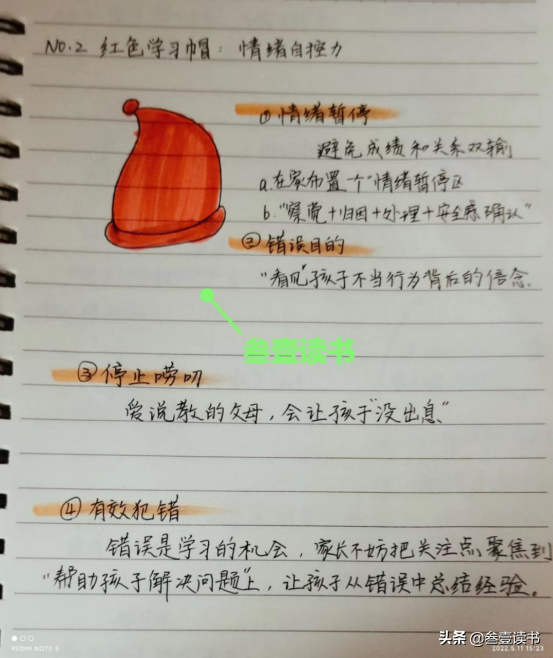 NO.2 红色学习帽：情绪自控力
①情绪暂停
避免成绩和关系双输
a.在家布置个"情绪暂停区
b."察觉+归因+处理+安全感确认"
②错误目的
"看见"孩子不当行为背后的信念.
叁壹读书
③停止唠叨
爱说教的父母，会让孩子"没出息"
④有效犯错
错误是学习的机会，家长不妨把关注点聚焦到
"帮助孩子解决问题"上，让孩子从错误中总结经验。
REDMI NOTE 8
头条 @叁壹读书
2022.5.11 15:23